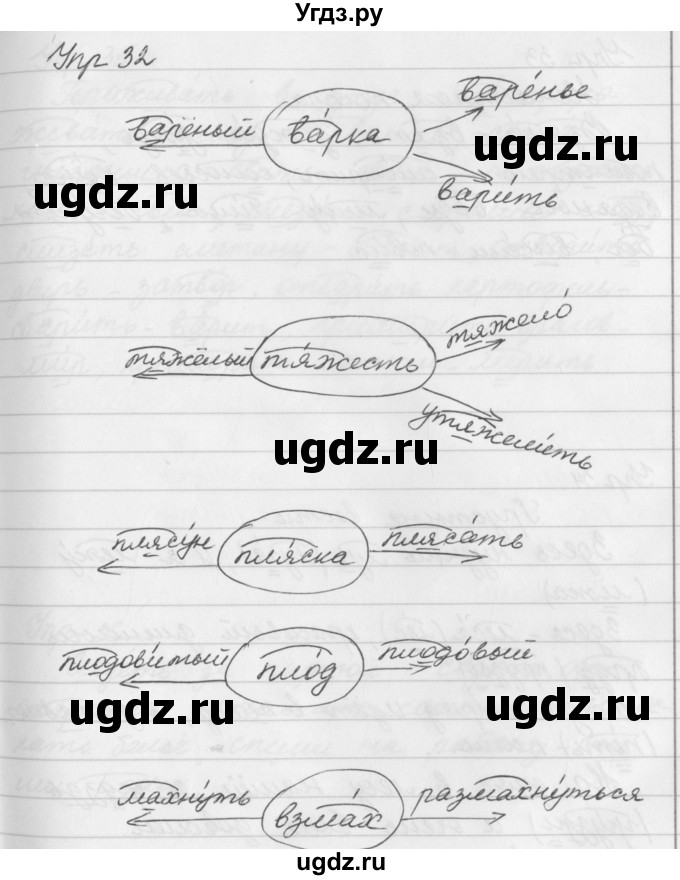 Угдз.ру
Упр 32
варе́нье
варёный ва́рка
ugdz.ru
ugdz.ru
вари́ть
тяжело́
тяжёлый тя́жесть
утяжели́ть
ugdz.ru
плясу́н пля́ска пляса́ть
плодови́тый пло́д плодо́вый
ugdz.ru
ugdz.ru
махну́ть взма́х размахну́ться
ugdz.ru